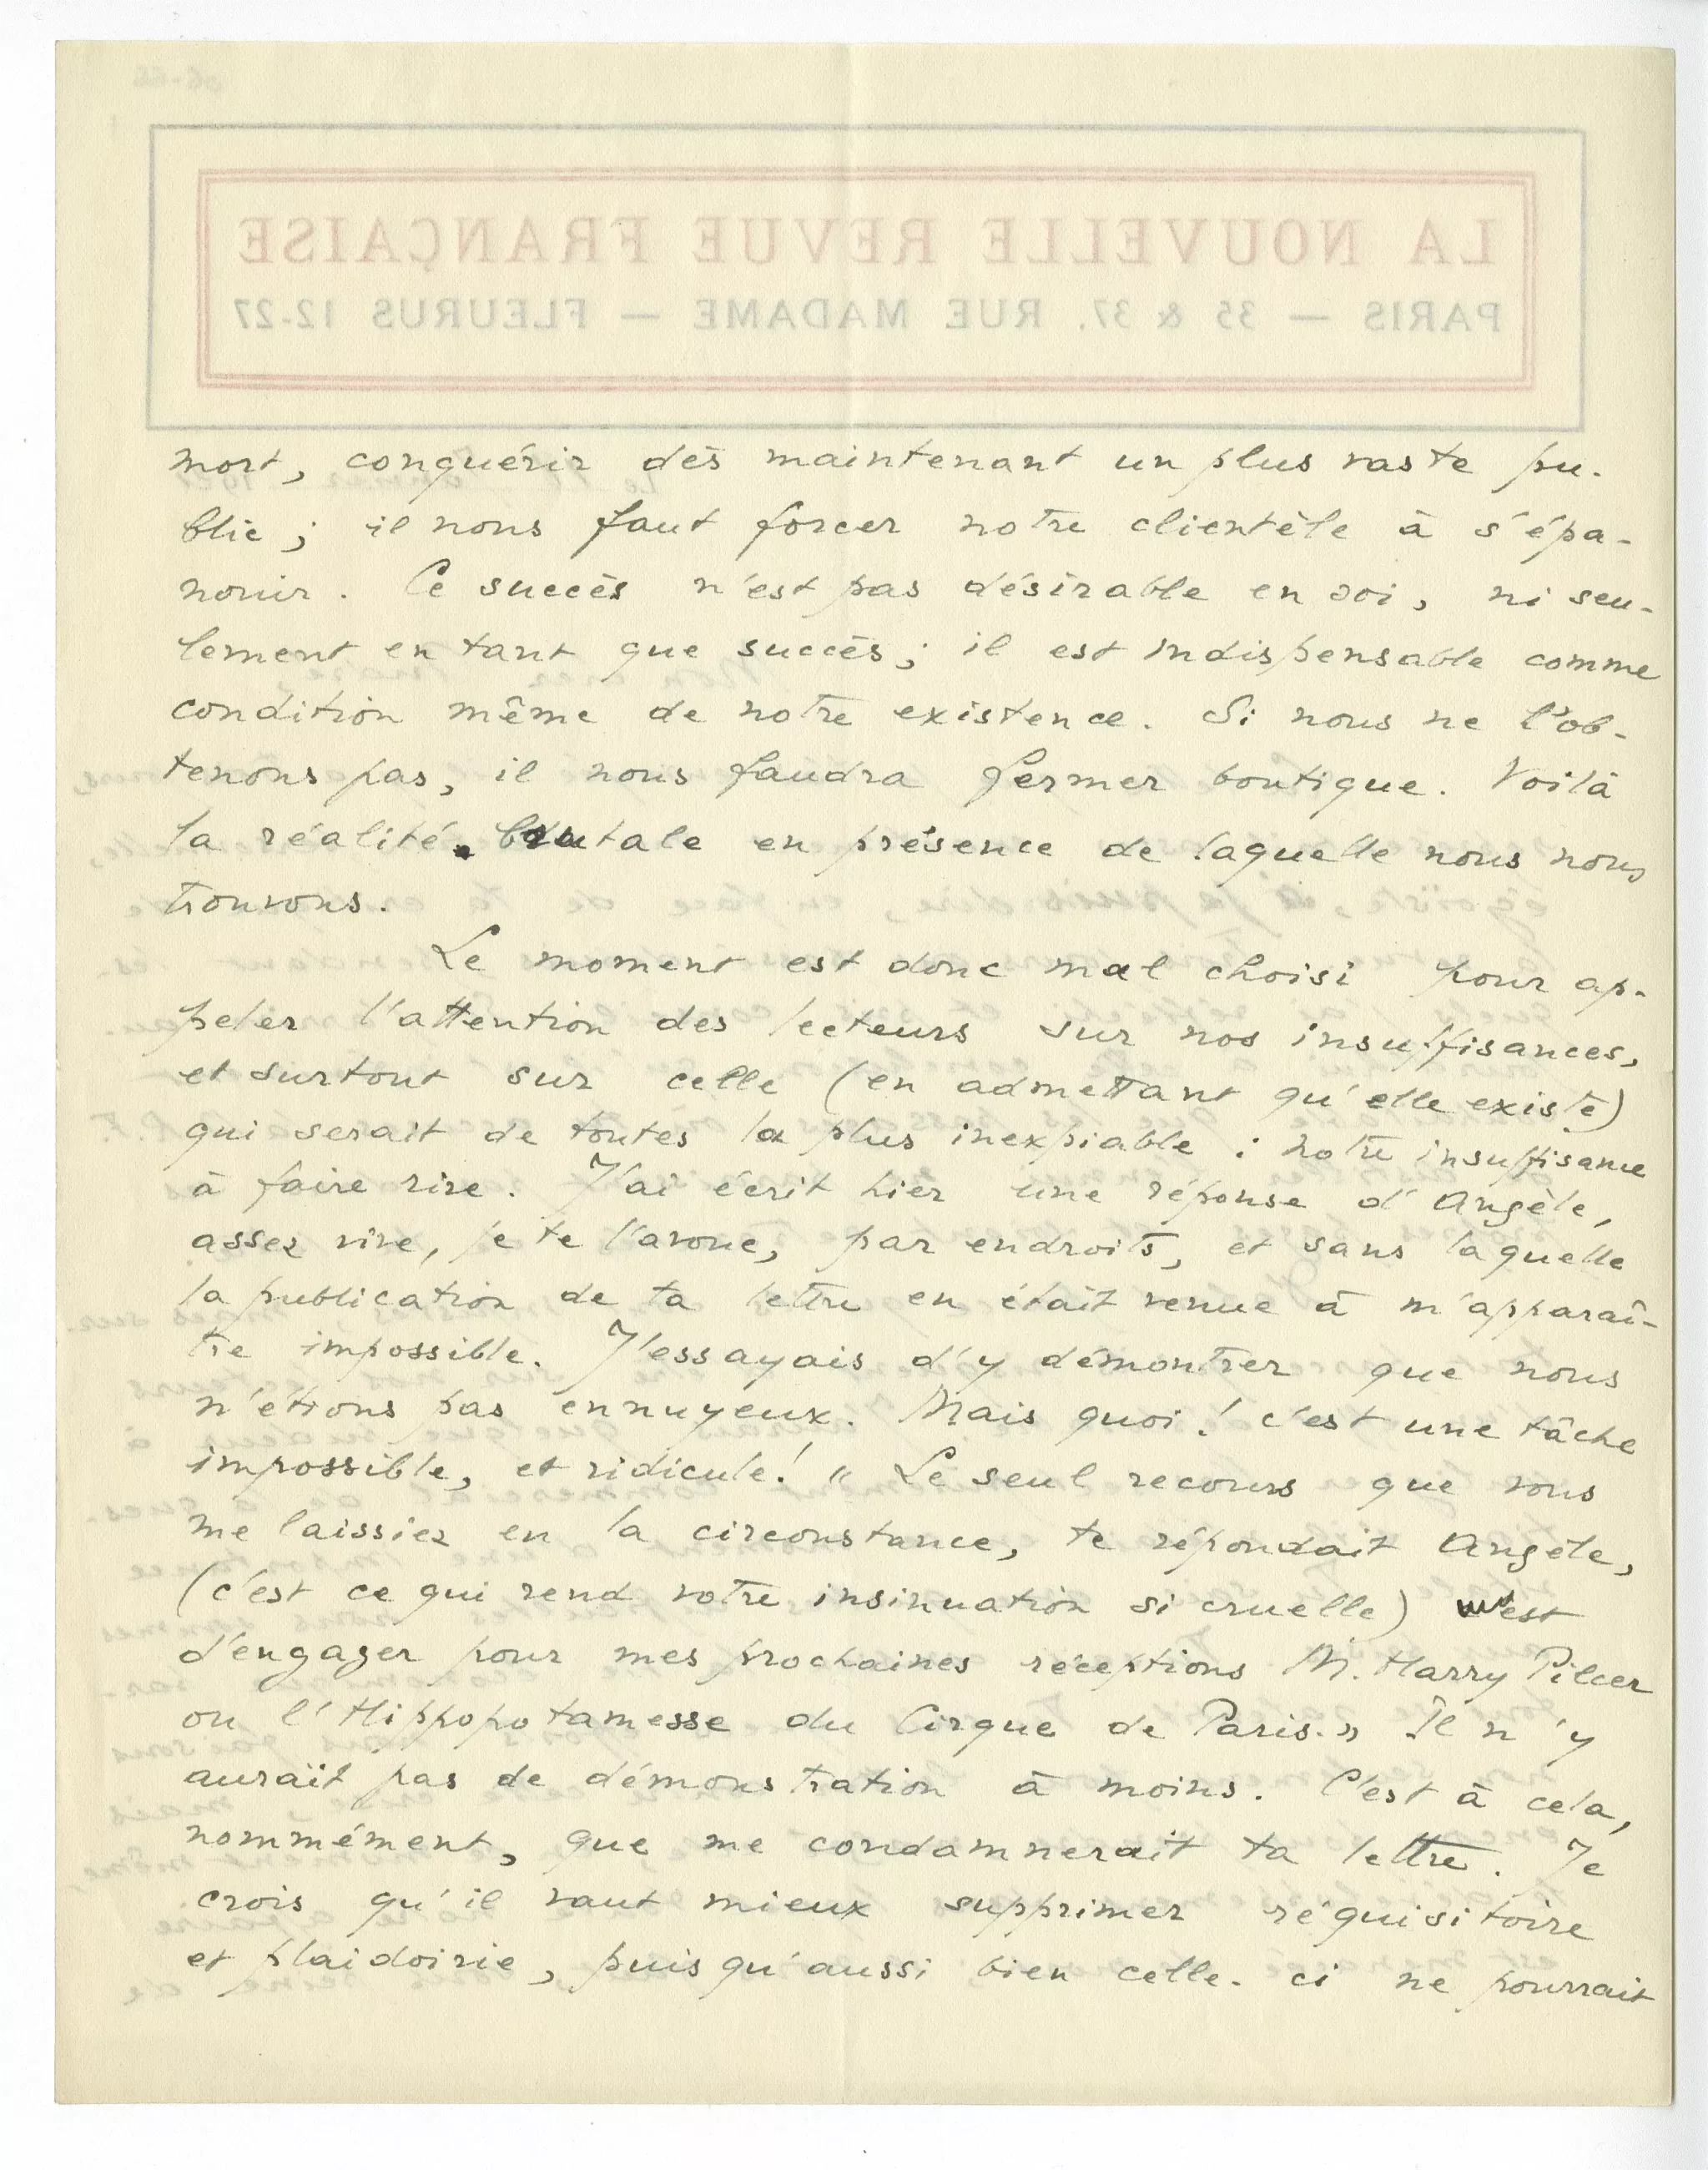 LA NOUVELLE REVUE FRANÇAISE
PARIS — 35 & 37, RUE MADAME — FLEURUS 12-27
mort, conquérir dès maintenant un plus vaste pu-
blic ; il nous faut forcer notre clientèle à s'épa-
nouir. Ce succès n'est pas désirable en soi, ni seu-
lement en tant que succès ; il est indispensable comme
condition même de notre existence. Si nous ne l'ob-
tenons pas, il nous faudra fermer boutique. Voilà
la réalité brutale en présence de laquelle nous nous
trouvons.
Le moment est donc mal choisi pour ap-
peler l'attention des lecteurs sur nos insuffisances,
et surtout sur celle (en admettant qu'elle existe)
qui serait de toutes la plus inexpiable : notre insuffisance
à faire rire. J'ai écrit hier une réponse d'Angèle,
assez vive, je te l'avoue, par endroits, et sans laquelle
la publication de ta lettre en était venue à m'apparaî-
tre impossible. J'essayais d'y démontrer que nous
n'étions pas ennuyeux. Mais quoi ! c'est une tâche
impossible, et ridicule ! « Le seul recours que vous
me laissiez en la circonstance, te répondait Angèle,
(c'est ce qui rend votre insinuation si cruelle) c'est
d'engager pour mes prochaines réceptions M. Harry Pilcer
ou l'Hippopotamesse du Cirque de Paris. » Il n'y
aurait pas de démonstration à moins. C'est à cela,
nommément, que me condamnerait ta lettre. Je
crois qu'il vaut mieux supprimer réquisitoire
et plaidoirie, puisqu'aussi bien celle-ci ne pourrait